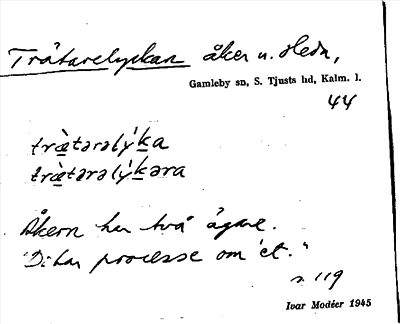 Trätarelyckan åker u. Hedn,
Gamleby sn, S. Tjusts hd, Kalm. l.
44
træ̀taralýka
træ̀taralýkara
Åkern har två ägare.
"Di har processe om et."
s. 119
Ivar Modéer 1945